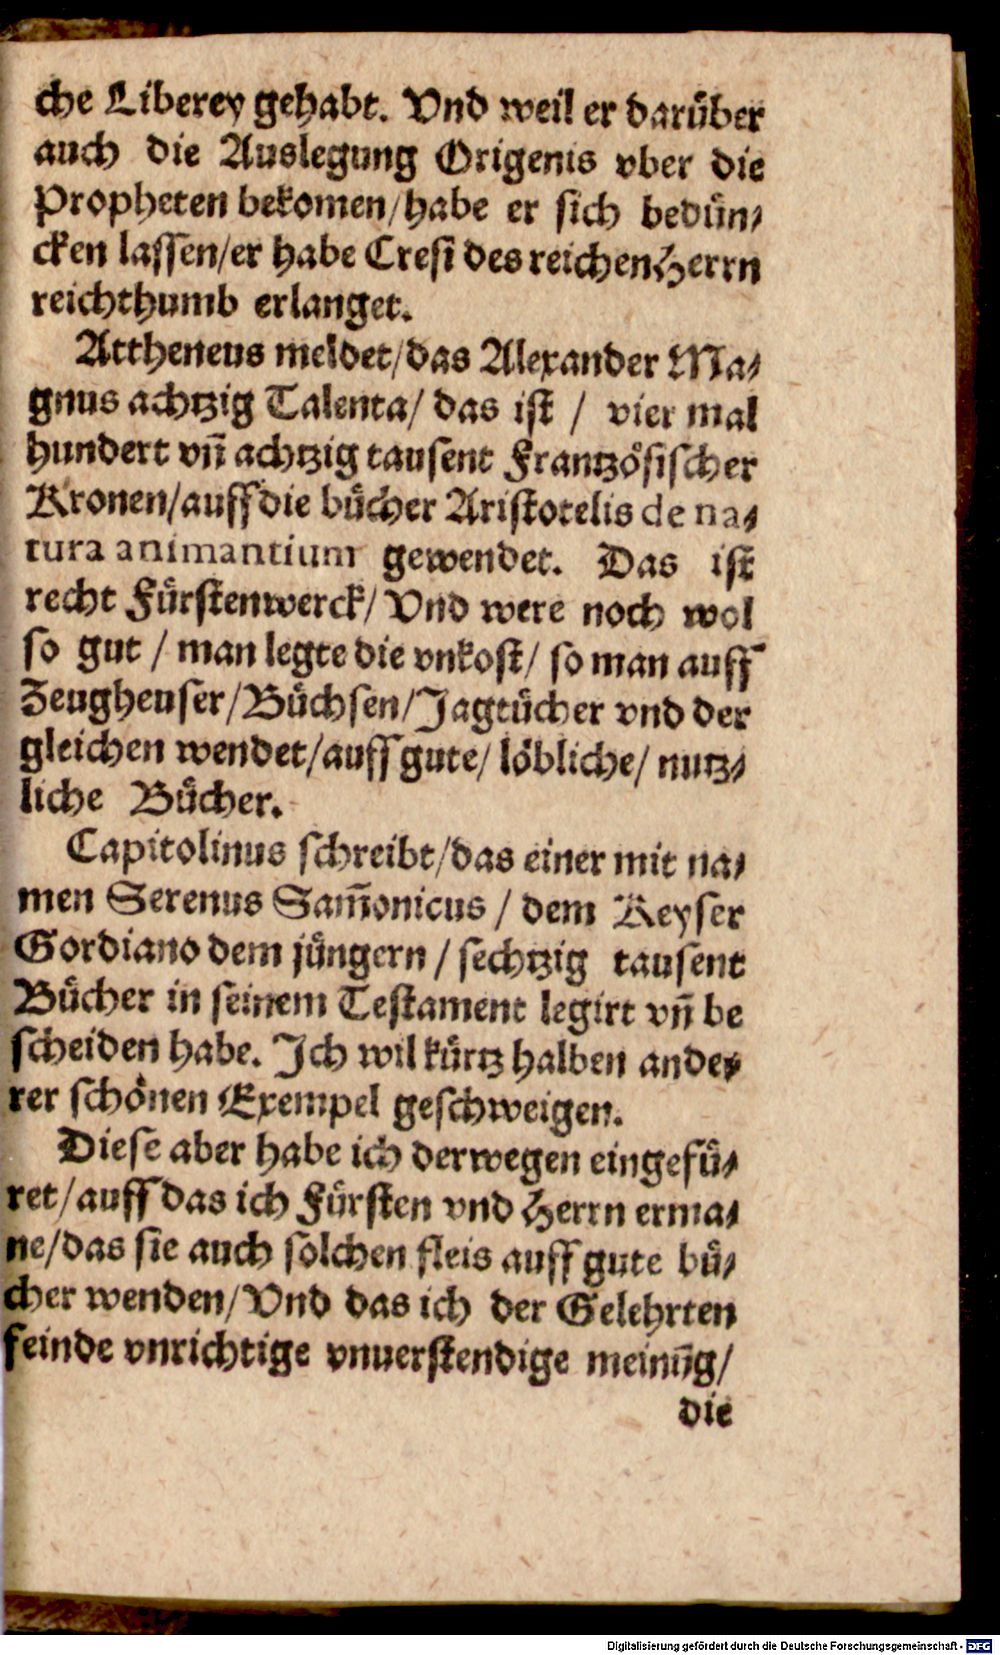 che Liberey gehabt. Vnd weil er darüber
auch die Auslegung Origenis vber die
Propheten bekomen/habe er sich bedün⸗
cken lassen/er habe Cresi des reichen Herrn
reichthumb erlanget.
Attheneus meldet/das Alexander Ma⸗
gnus achtzig Talenta/ das ist / vier mal
hundert vñ achtzig tausent Frantzösischer
Kronen/auff die bücher Aristotelis de na⸗
tura animantium gewendet. Das ist
recht Fürstenwerck/ Vnd were noch wol
so gut / man legte die vnkost/ so man auff
Zeugheuser/Büchsen/Jagtücher vnd der
gleichen wendet/auff gute/ löbliche/ nutz⸗
liche Bücher.
Capitolinus schreibt/das einer mit na⸗
men Serenus Sam̃onicus / dem Keyser
Gordiano dem jüngern / sechtzig tausent
Bücher in seinem Testament legirt vñ be
scheiden habe. Ich wil kürtz halben ande⸗
rer schönen Exempel geschweigen.
Diese aber habe ich derwegen eingefü⸗
ret/auff das ich Fürsten vnd Herrn erma⸗
ne/das sie auch solchen fleis auff gute bü⸗
cher wenden/Vnd das ich der Gelehrten
feinde vnrichtige vnuerstendige meinũg/
die
Digitalisierung gefördert durch die Deutsche Forschungsgemeinschaft - DFG